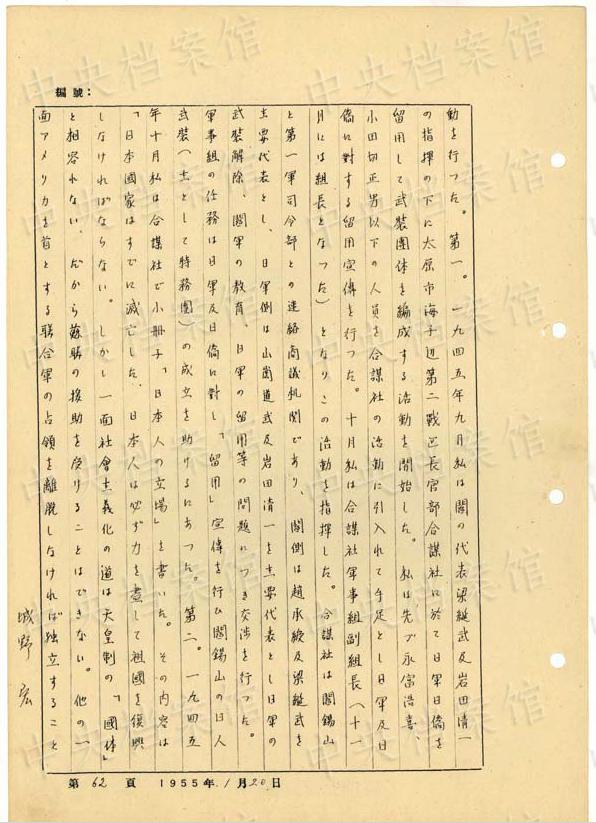 編號：
動を行つた。第一。一九四五年九月私は閻の代表梁綖武及岩田清一
の指揮の下に太原市海子辺第二戰区長官部合謀社に於て日軍日僑を
留用して武裝團体を編成する活動を開始した。私は先づ永富浩喜、
小田切正男以下の人員を合謀社の活動に引入れて手足とし日軍及日
僑に對する留用宣傳を行つた。十月私は合謀社軍事組副組長（十一
月には組長となつた）となりこの活動を指揮した。合謀社は閻錫山
と第一軍司令部との連絡商議机関であり、閻側は趙承綬及梁綖武を
主要代表とし、日軍側は山岡道武及岩田清一を主要代表とし日軍の
武裝解除、閻軍の教育、日軍の留用等の問題につき交渉を行つた。
軍事組の任務は日軍及日僑に對し「留用」宣傳を行ひ閻錫山の日人
武裝（主として特務團）の成立を助けるにあつた。第二。一九四五
年十月私は合謀社で小冊子「日本人の立場」を書いた。その内容は
「日本國家はすでに滅亡した、日本人は必ず力を盡して祖國を復興
しなければならない。しかし一面社會主義化の道は天皇制の「國体」
と相容れない、だから蘇聯の援助を受けることはできない。他の一
面アメリカを首とする聯合軍の占領を離脱しなければ独立すること
城野宏
第62頁 1955年1月20日
中央档案馆